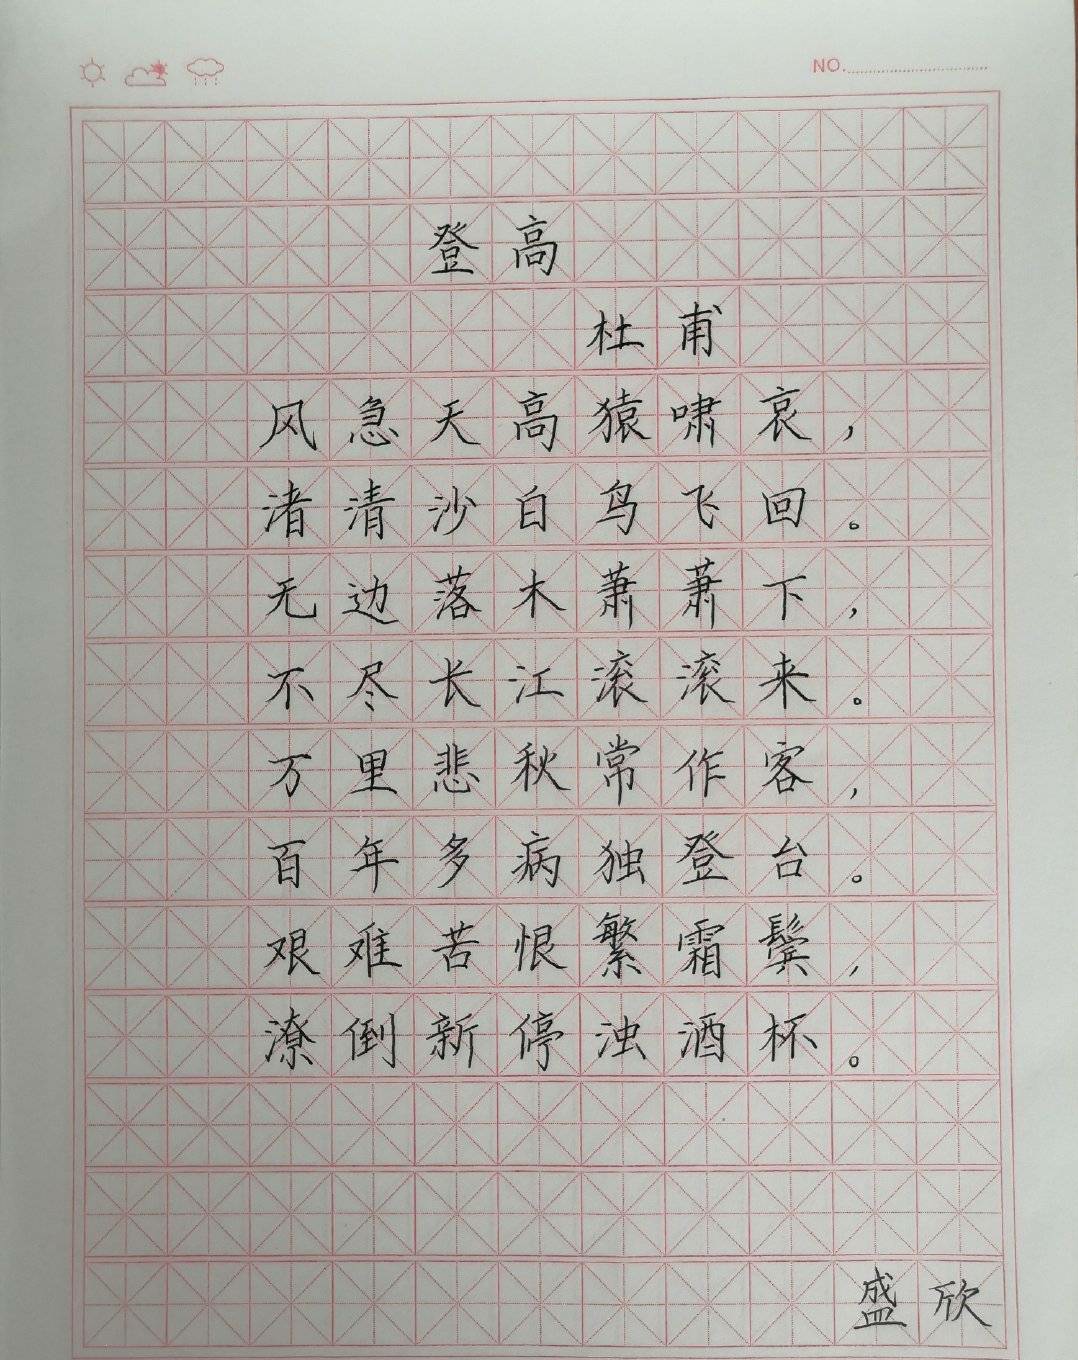 NO.
登高
杜甫
风急天高猿啸哀，
渚清沙白鸟飞回。
无边落木萧萧下，
不尽长江滚滚来。
万里悲秋常作客，
百年多病独登台。
艰难苦恨繁霜鬓，
潦倒新停浊酒杯。
盛欣